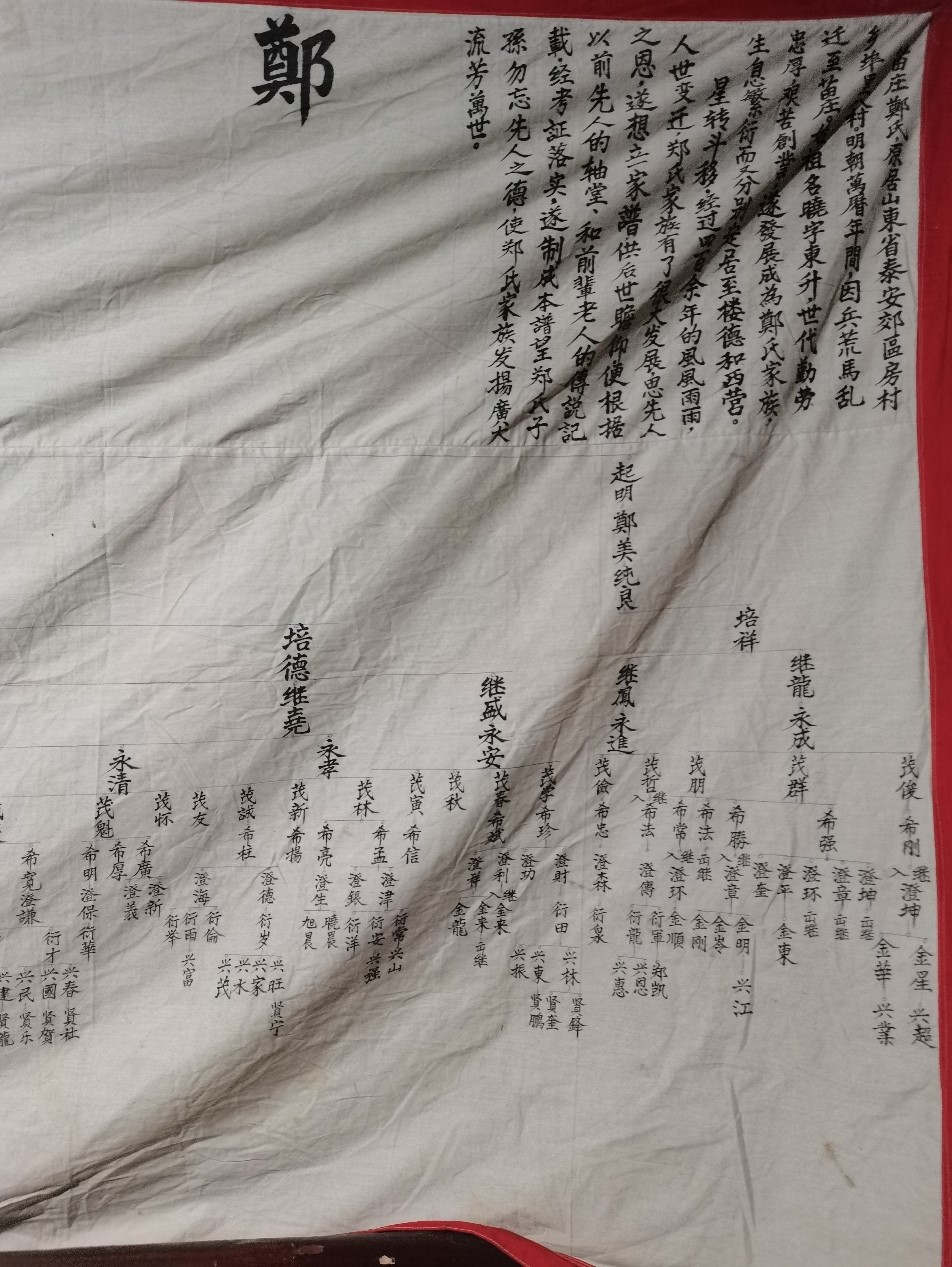 苗庄鄭氏原居山東省泰安郊區房村
村。明朝萬曆年間，因兵荒馬乱
迁至苗庄。始祖名曉字東升，世代勤劳
忠厚，艰苦創業，遂發展成為鄭氏家族，
生息繁衍而又分别定居至楼德和西营。
星转斗移，经过四百余年的風風雨雨，
人世变迁，郑氏家族有了很大发展，思先人
之恩，遂想立一家普供后世瞻仰，便根据
以前先人的轴堂、和前輩老人的傳說記
載，经考証落实，遂制成本譜望郑氏子
孫勿忘先人之德，使郑氏家族发揚廣大
流芳萬世。
鄭
起明 鄭美纯良
培祥
继龍 永成
继鳳 永進
继盛 永安
培德 继堯
永孝
永清
茂俊 希刚
茂群
茂朋
茂哲
茂儉 希忠
茂学 希珍
茂春 希斌
茂秋
茂寅 希信
茂林
茂新 希揚
茂誠 希柱
茂友
茂怀
茂魁
希强
希勝
希法 출继
希常
继入 希法
希孟
希亮
希廣
希厚
希明
希寬
继入 澄坤
澄坤 出继
澄章 出继
澄环 出继
澄平
澄奎
继入 澄章
继入 澄环
澄傳
澄森
澄財
澄功
澄利
澄祥
澄津
澄銀
澄生
澄德
澄海
澄新
澄義
澄保
澄謙
金星 兴超
金華 兴業
金東
金明 兴江
金岑
金剛
金順
衍軍
衍龍
衍泉
衍田
继入 金来
金来 出继
金龍
衍常 兴山
衍安 兴强
衍洋
曉晨
旭晨
衍岁
衍倫
衍雨
衍举
衍華
衍才
郑凯
兴恩
兴惠
兴林
兴東
兴振
兴旺
兴家
兴水
兴茂
兴富
兴春
兴國
兴民
兴建
賢鋒
賢奎
賢鹏
賢宁
賢社
賢贺
賢乐
賢龍